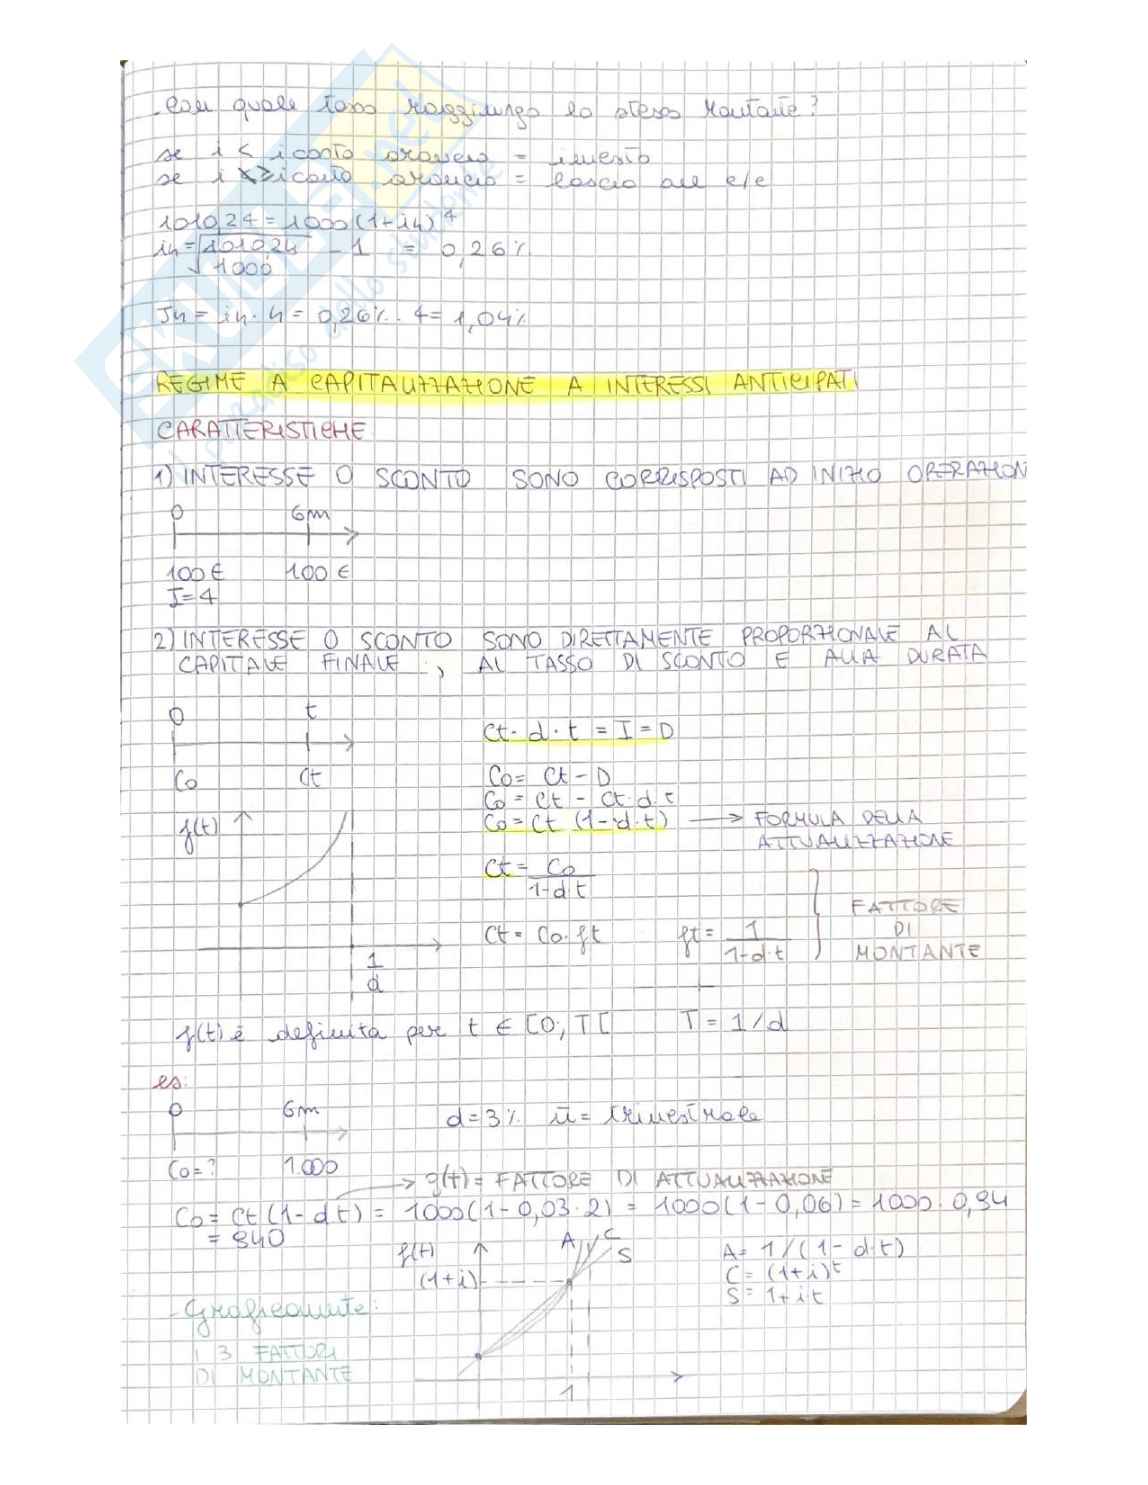 - Con quale tasso raggiungo lo stesso Montante?
se i < i conto arancio = investo
se i ≥ i conto arancio = lascio alle c/c
1010,24 = 1000 (1+i4)^4
i4 = √1010,24/1000 - 1 = 0,26%
J4 = i4 · 4 = 0,26% · 4 = 1,04%
REGIME A CAPITALIZZAZIONE A INTERESSI ANTICIPATI
CARATTERISTICHE
1) INTERESSE O SCONTO SONO CORRISPOSTI AD INIZIO OPERAZION
0 6m
100€ 100€
I=4
2) INTERESSE O SCONTO SONO DIRETTAMENTE PROPORZIONALE AL
CAPITALE FINALE, AL TASSO DI SCONTO E ALLA DURATA
0 t
Ct · d · t = I = D
Co Ct
Co = Ct - D
Co = Ct - Ct · d · t
f(t)
Co = Ct (1 - d · t) → FORMULA DELLA
ATTUALIZZAZIONE
Ct = Co/1-d·t
Ct = Co · ft ft = 1/1-d·t } FATTORE
DI
MONTANTE
1/d
f(t) è definita per t ∈ [0; T[ T = 1/d
es:
0 6m d = 3% u = trimestrale
Co = ? 1.000
→ g(t) = FATTORE DI ATTUALIZZAZIONE
Co = Ct (1 - dt) = 1000 (1 - 0,03 · 2) = 1000 (1 - 0,06) = 1000 · 0,94
= 940
f(t) A C S
(1+i)
A = 1/(1 - d·t)
C = (1+i)^t
S = 1 + it
- Graficamente:
I 3 FATTORI
DI MONTANTE
1